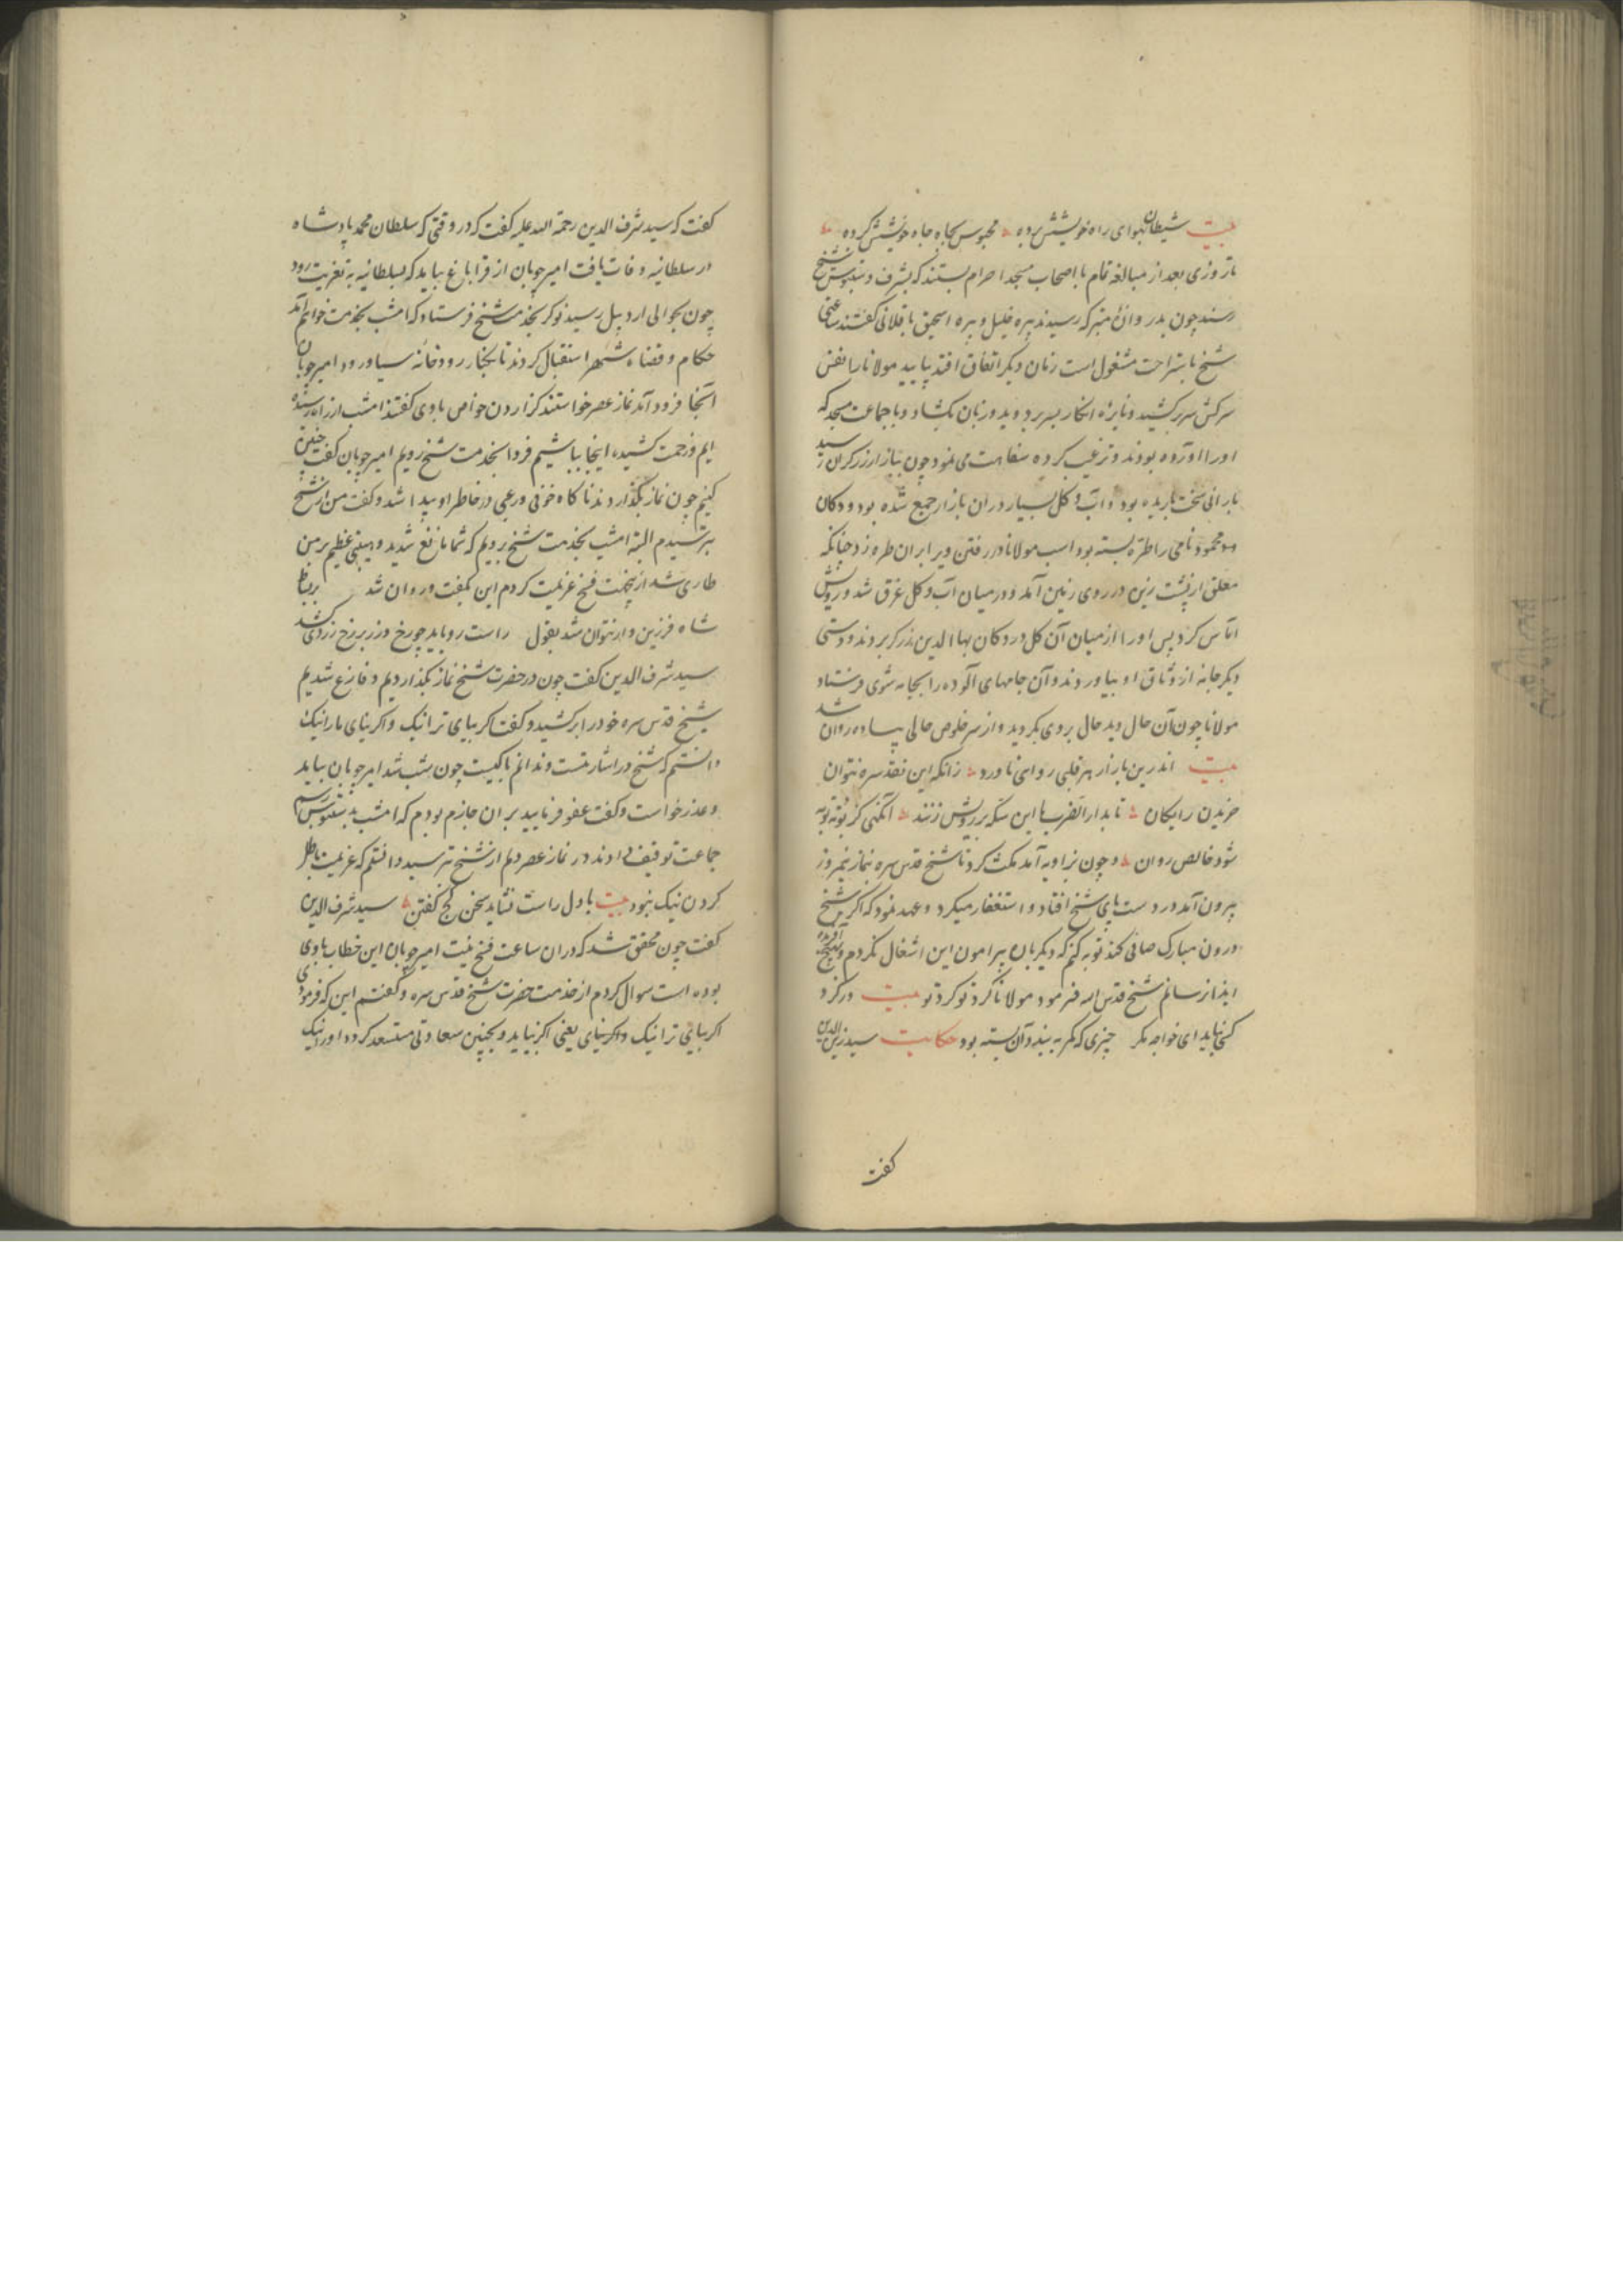 بیت شیطان بهوای راه خویشش برده محبوس بچاه جاه خویشش کرده
تا روزی بعد از مبالغه تمام با اصحاب مسجد احرام بستند که بشرف دستبوس شیخ
رسند چون بدر وازهٔ متبرکه رسیدند پیره خلیل و پیره اسحق باقلانی گفتند ساعتی
شیخ باستراحت مشغول است زمان دیگر اتفاق افتد بیایید مولانا را نفس
سرکش سر برکشید و نایرهٔ انکار بسر بر دوید و زبان بگشاد و با جماعت مسجد که
او را آورده بودند و ترغیب کرده سفاهت می نمود چون ببازار زرگران رسید
بارانی سخت باریده بود و آب و گل بسیار در آن بازار جمع شده بود و دکان
محمود نامی را طره بسته بود اسب مولانا در رفتن ویرا بر آن طره زد چنانکه
معلق از پشت زین در روی زمین آمد و در میان آب و گل غرق شد و رویش
آماس کرد پس او را از میان آن گل در دکان بهاء الدین زرگر بردند و دستی
دیگر جامه از وثاق او بیاوردند و آن جامهای آلوده را بجامه شوی فرستاد
مولانا چون آن حال دید حال بروی بگردید و از سر خلوص حالی پیاده روان شد
بیت اندرین بازار هر قلبی روایی ناورد زانکه این نقد سره نتوان
خریدن رایگان تا بدار الضرب ها این سکه بر رویش زنند آنگهی کز بوته توبه
شود خالص روان و چون بزاویه آمد مکث کرد تا شیخ قدس سره بنماز نیمروز
بیرون آمد در دست پای شیخ افتاد و استغفار میکرد و عهد نمود که اگر شیخ
درون مبارک صافی کند توبه کنم که دیگر باره پیرامون این اشغال نگردم و بهیچ آفریده
ایذا نرسانم شیخ قدس سره فرمود مولانا گرد تو گرد تو بیت درگرد
کسی نیاید ای خواجه مگر چیزی که بگرد بنده آن بسته بود حکایت سید زین الدین
گفت
گفت که سید شرف الدین رحمة الله علیه گفت که در وقتی که سلطان محمد پادشاه
در سلطانیه وفات یافت امیر چوپان از قراباغ بیاید که بسلطانیه بتعزیت رود
چون بحوالی اردبیل رسید نوکر بخدمت شیخ فرستاد که امشب بخدمت خواهم آمد
حکام و قضاه شهر استقبال کردند تا بکنار رودخانه سیاورود امیر چوپان
آنجا فرود آمد نماز عصر خواستند گزاردن خواص باوی گفتند امشب از راه رسیده
ایم و زحمت کشیده اینجا بباشیم فردا بخدمت شیخ رویم امیر چوپان گفت چنین
کنیم چون نماز بگذاردند ناگاه خوفی و رعبی در خاطر او پیدا شد و گفت من از شیخ
بترسیدم البته امشب بخدمت شیخ رویم که شما مانع شدید و هیبتی عظیم بر من
طاری شد از نجهت فسخ عزیمت کردم این بگفت و روان شد بر بساط
شاه فرزین وار نتوان شد بقول راست رو باید چو رخ ورنه برنج زردی کشد
سید شرف الدین گفت چون در حضرت شیخ نماز بگذاردیم و فارغ شدیم
شیخ قدس سره خود را برکشید و گفت اگر بیای ترا نیک و اگر نیای ما را نیک
دانستم که شیخ در اشارتست و ندانم با کیست چون شب شد امیر چوپان بیاید
و عذر خواست و گفت عفو فرمایید بر آن جازم بودم که امشب بدستبوس رسم
جماعت توقیف دادند در نماز عصر دلم از شیخ بترسید دانستم که عزیمت باطل
کردن نیک نبود بیت با دل راست نشاید سخن کج گفتن سید شرف الدین
گفت چون محقق شد که در آن ساعت فسخ نیت امیر چوپان این خطاب باوی
بوده است سوال کردم از خدمت حضرت شیخ قدس سره و گفتم این که فرمودی
اگر بیایی ترا نیک و اگر نیای یعنی اگر نیاید و بچنین سعادتی مستسعد گردد او را نیک